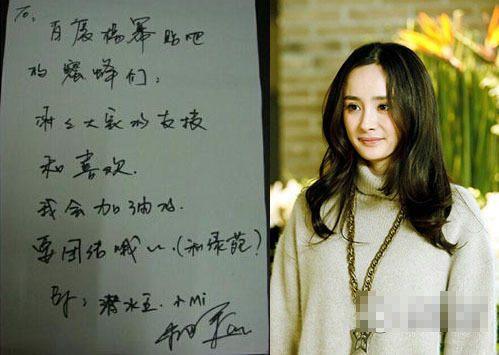 To:
百度杨幂贴吧
的蜜蜂们:
谢々大家的支持
和喜欢.
我会加油的.
要团结哦~~.(和绿苑!)
BY: 潜水王.小Mi